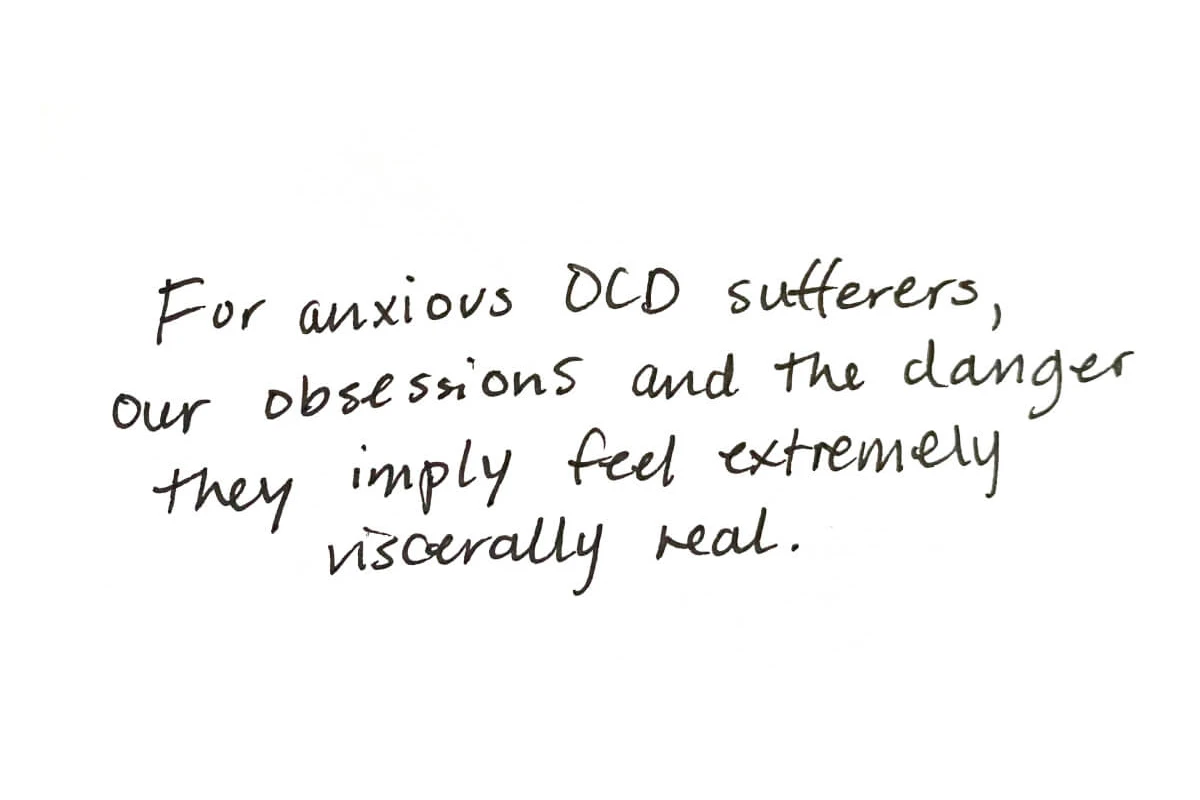 For anxious OCD sufferers,
our obsessions and the danger
they imply feel extremely
viscerally real.